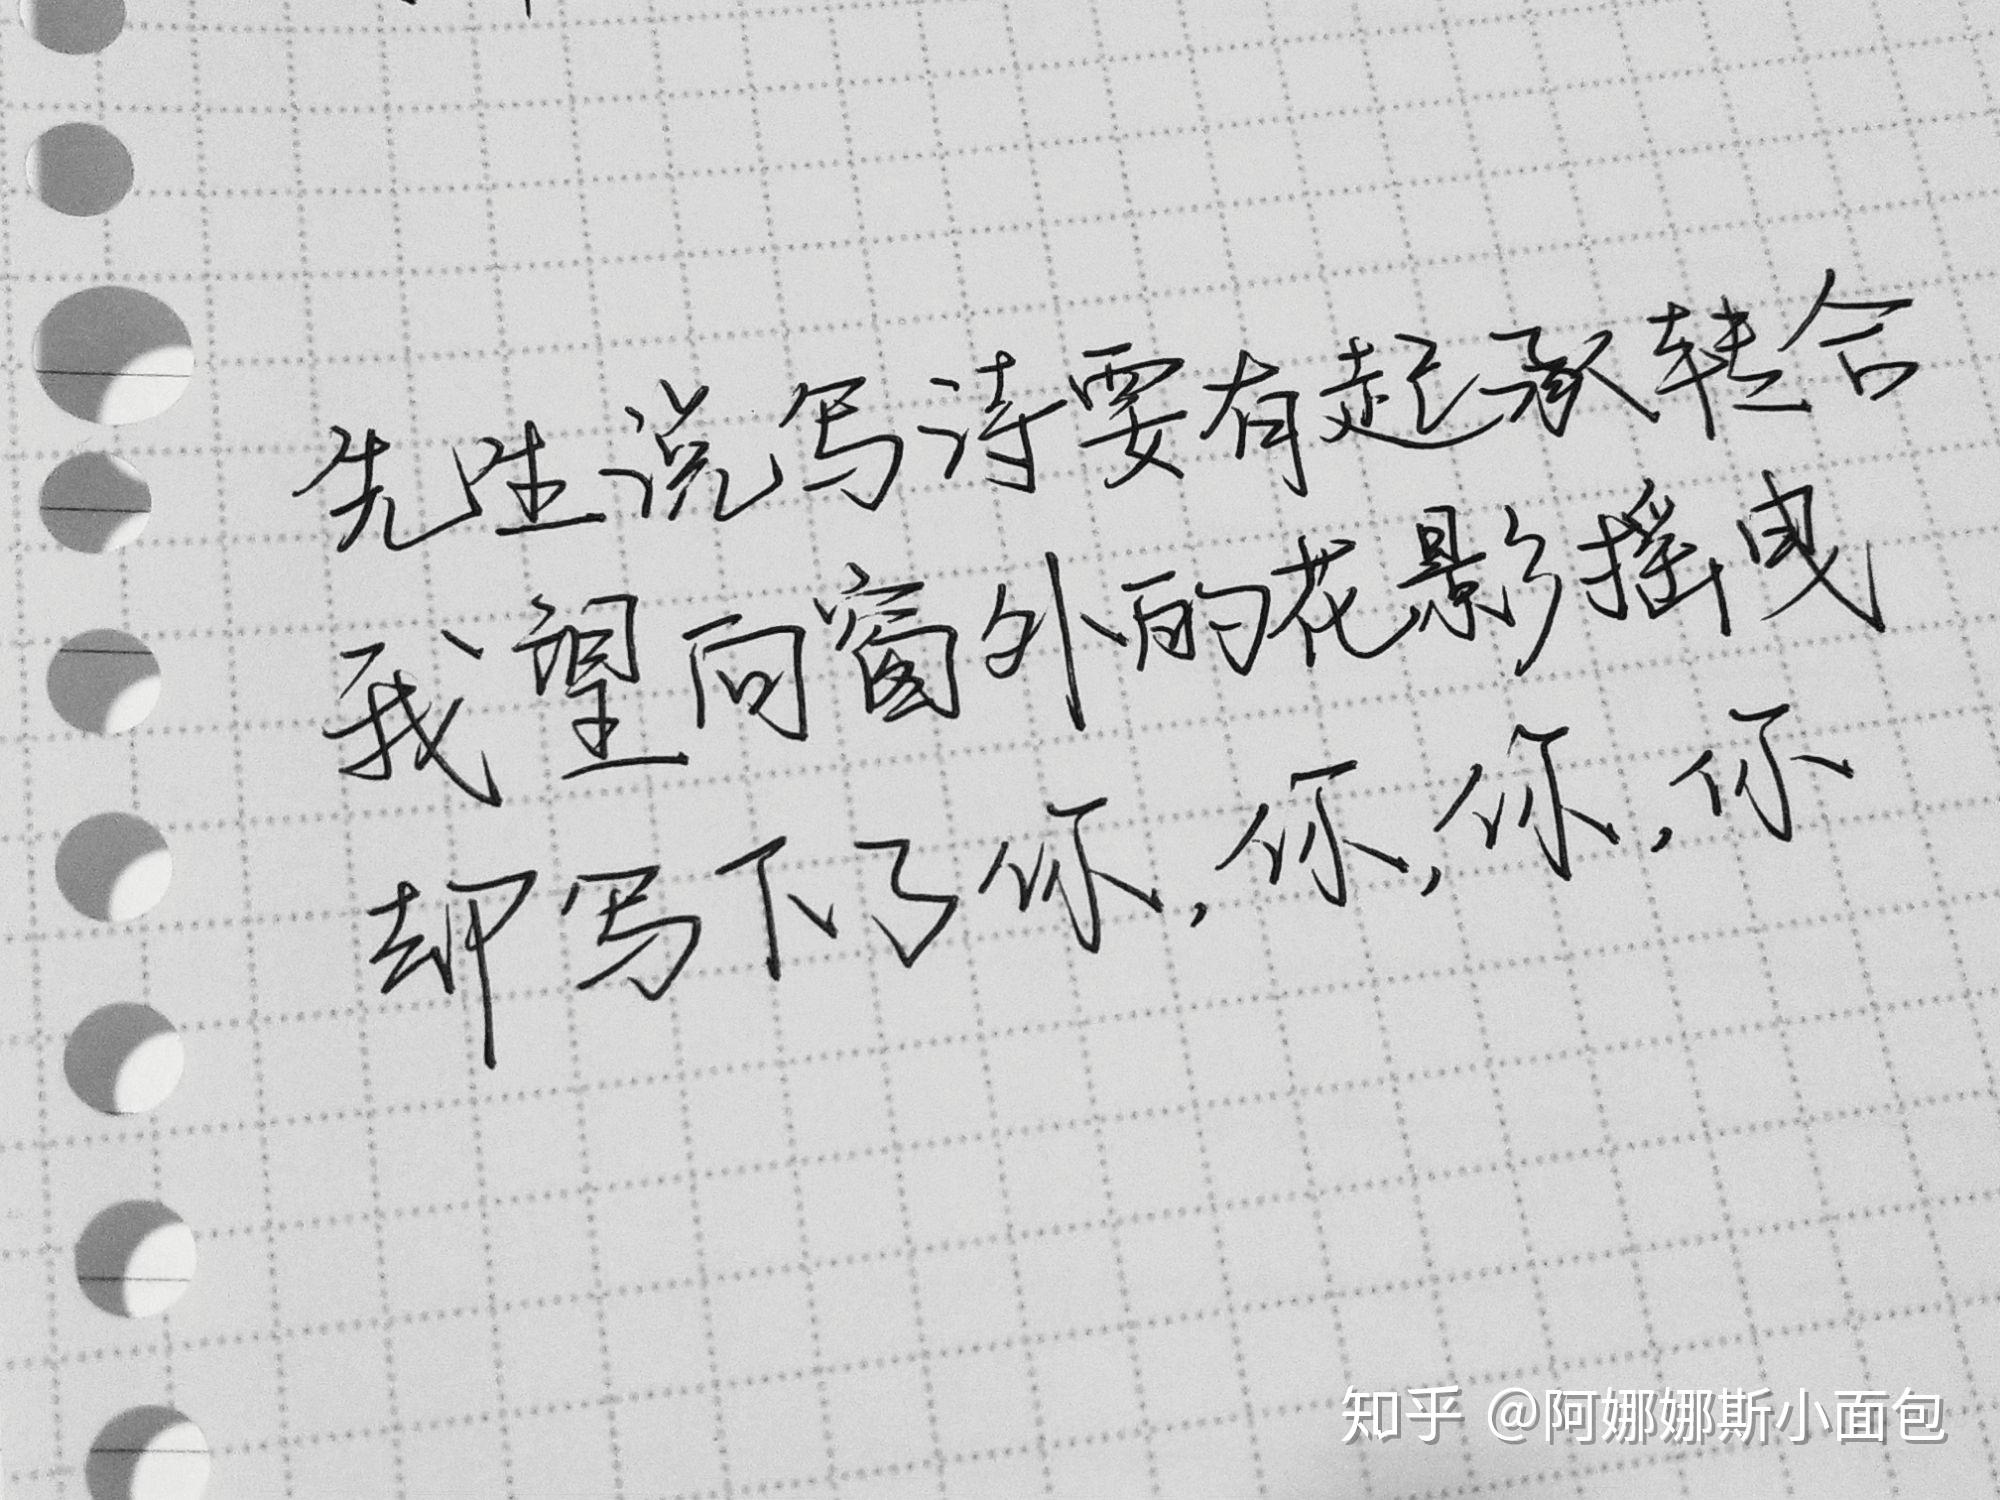 先生说写诗要有起承转合
我望向窗外的花影摇曳
却写下了你,你,你,你
知乎 @阿娜娜斯小面包